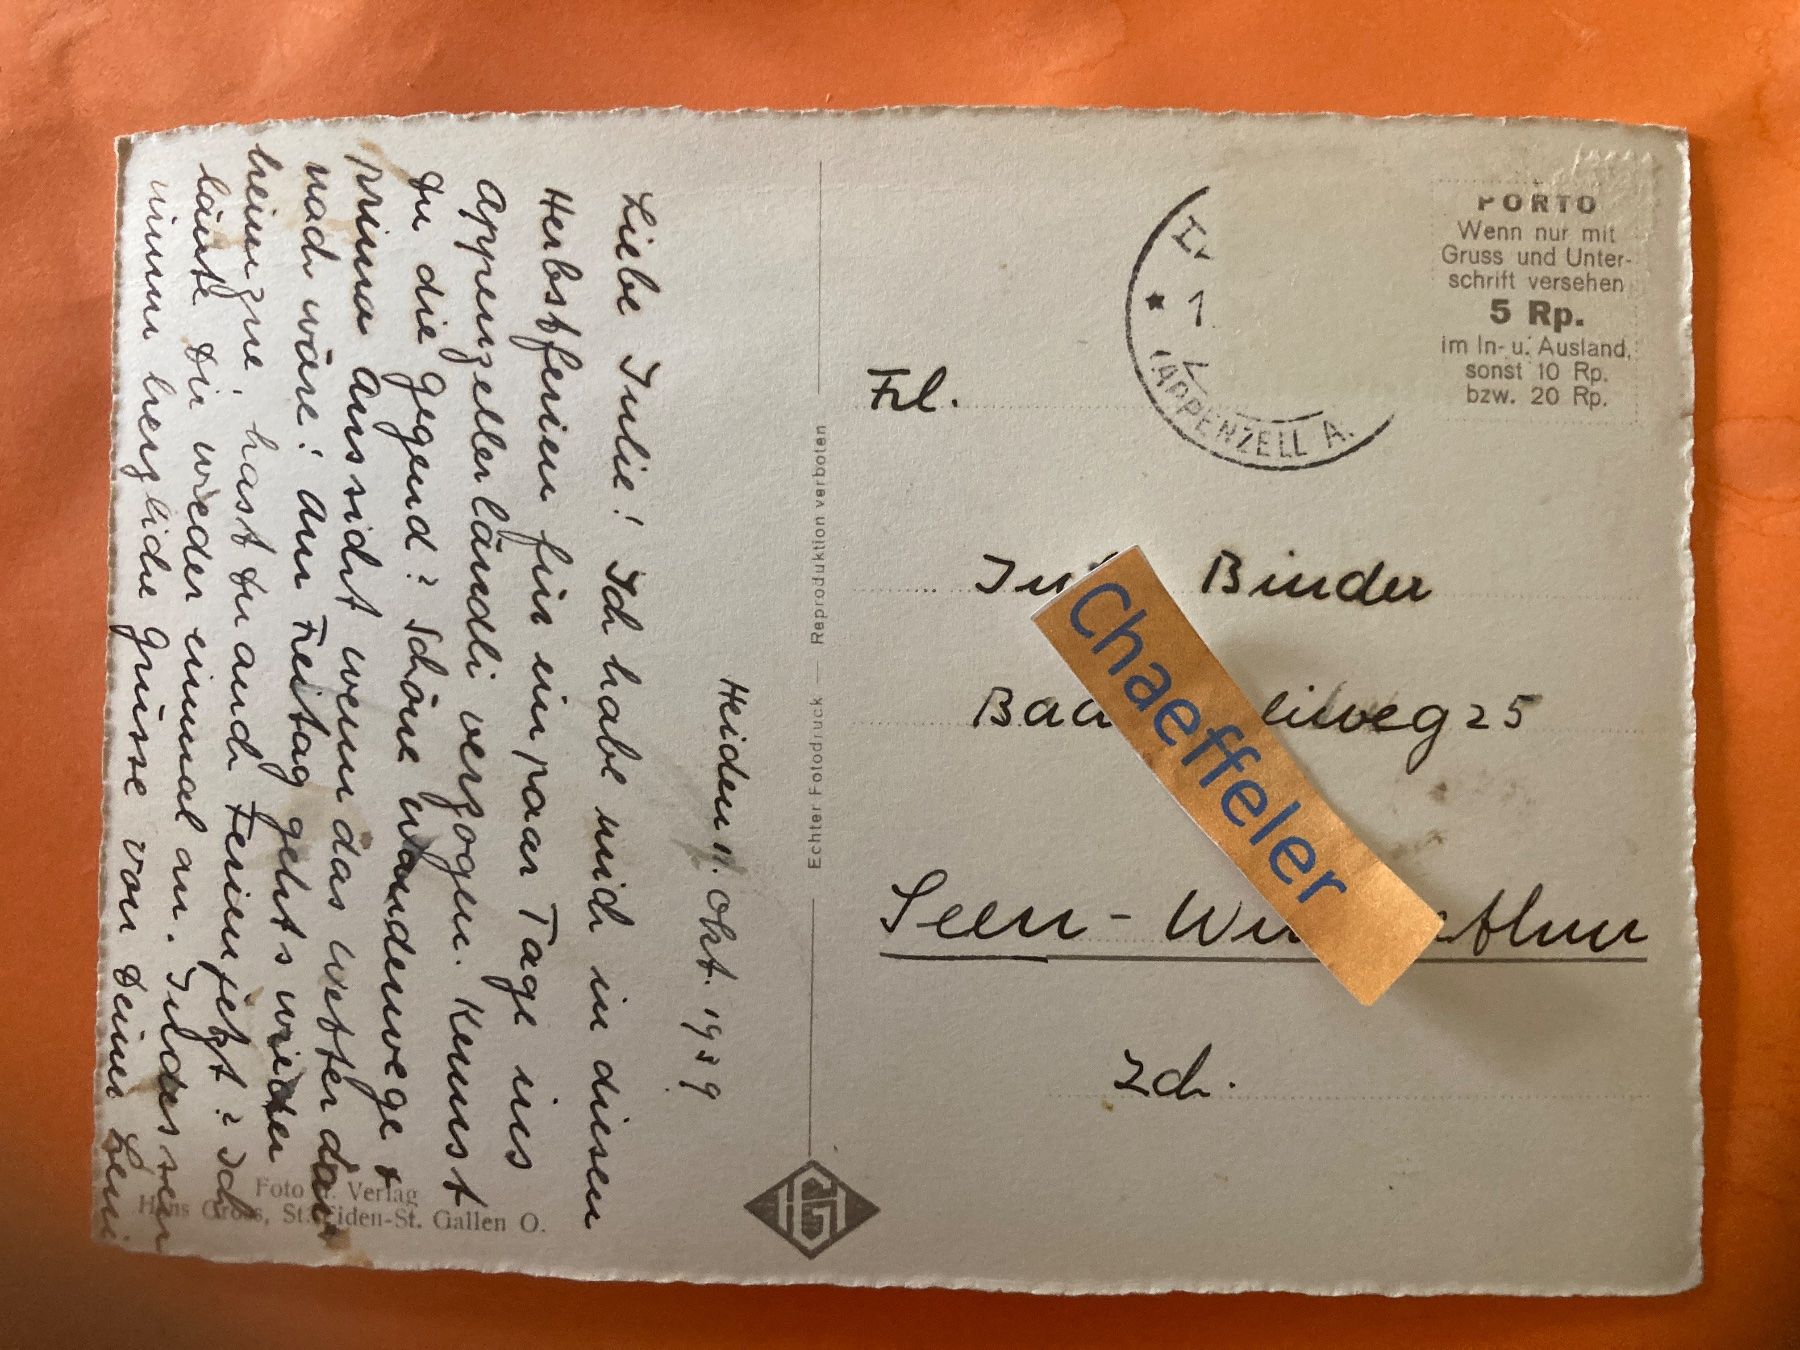 Heiden 11. Okt. 1939
Liebe Julie! Ich habe mich in diesen
Herbstferien für ein paar Tage ins
Appenzellerländli verzogen. Kennst
Du die Gegend? Schöne Wanderwege &
prima Aussicht wenn das Wetter dar
nach wäre! Am Freitag geht's wieder
heimzue. hast Du auch Ferien jetzt? Ich
läute Dir wieder einmal an. Indessen
nimm herzliche Grüsse von Deiner Leni
Foto u. Verlag
Hans Gross, St. Fiden-St. Gallen O.
Echter Fotodruck — Reproduktion verboten
PORTO
Wenn nur mit
Gruss und Unter-
schrift versehen
5 Rp.
im In- u. Ausland,
sonst 10 Rp.
bzw. 20 Rp.
(APPENZELL A.
Frl.
Binder
25
Seen -
Zch.
Chaeffeler